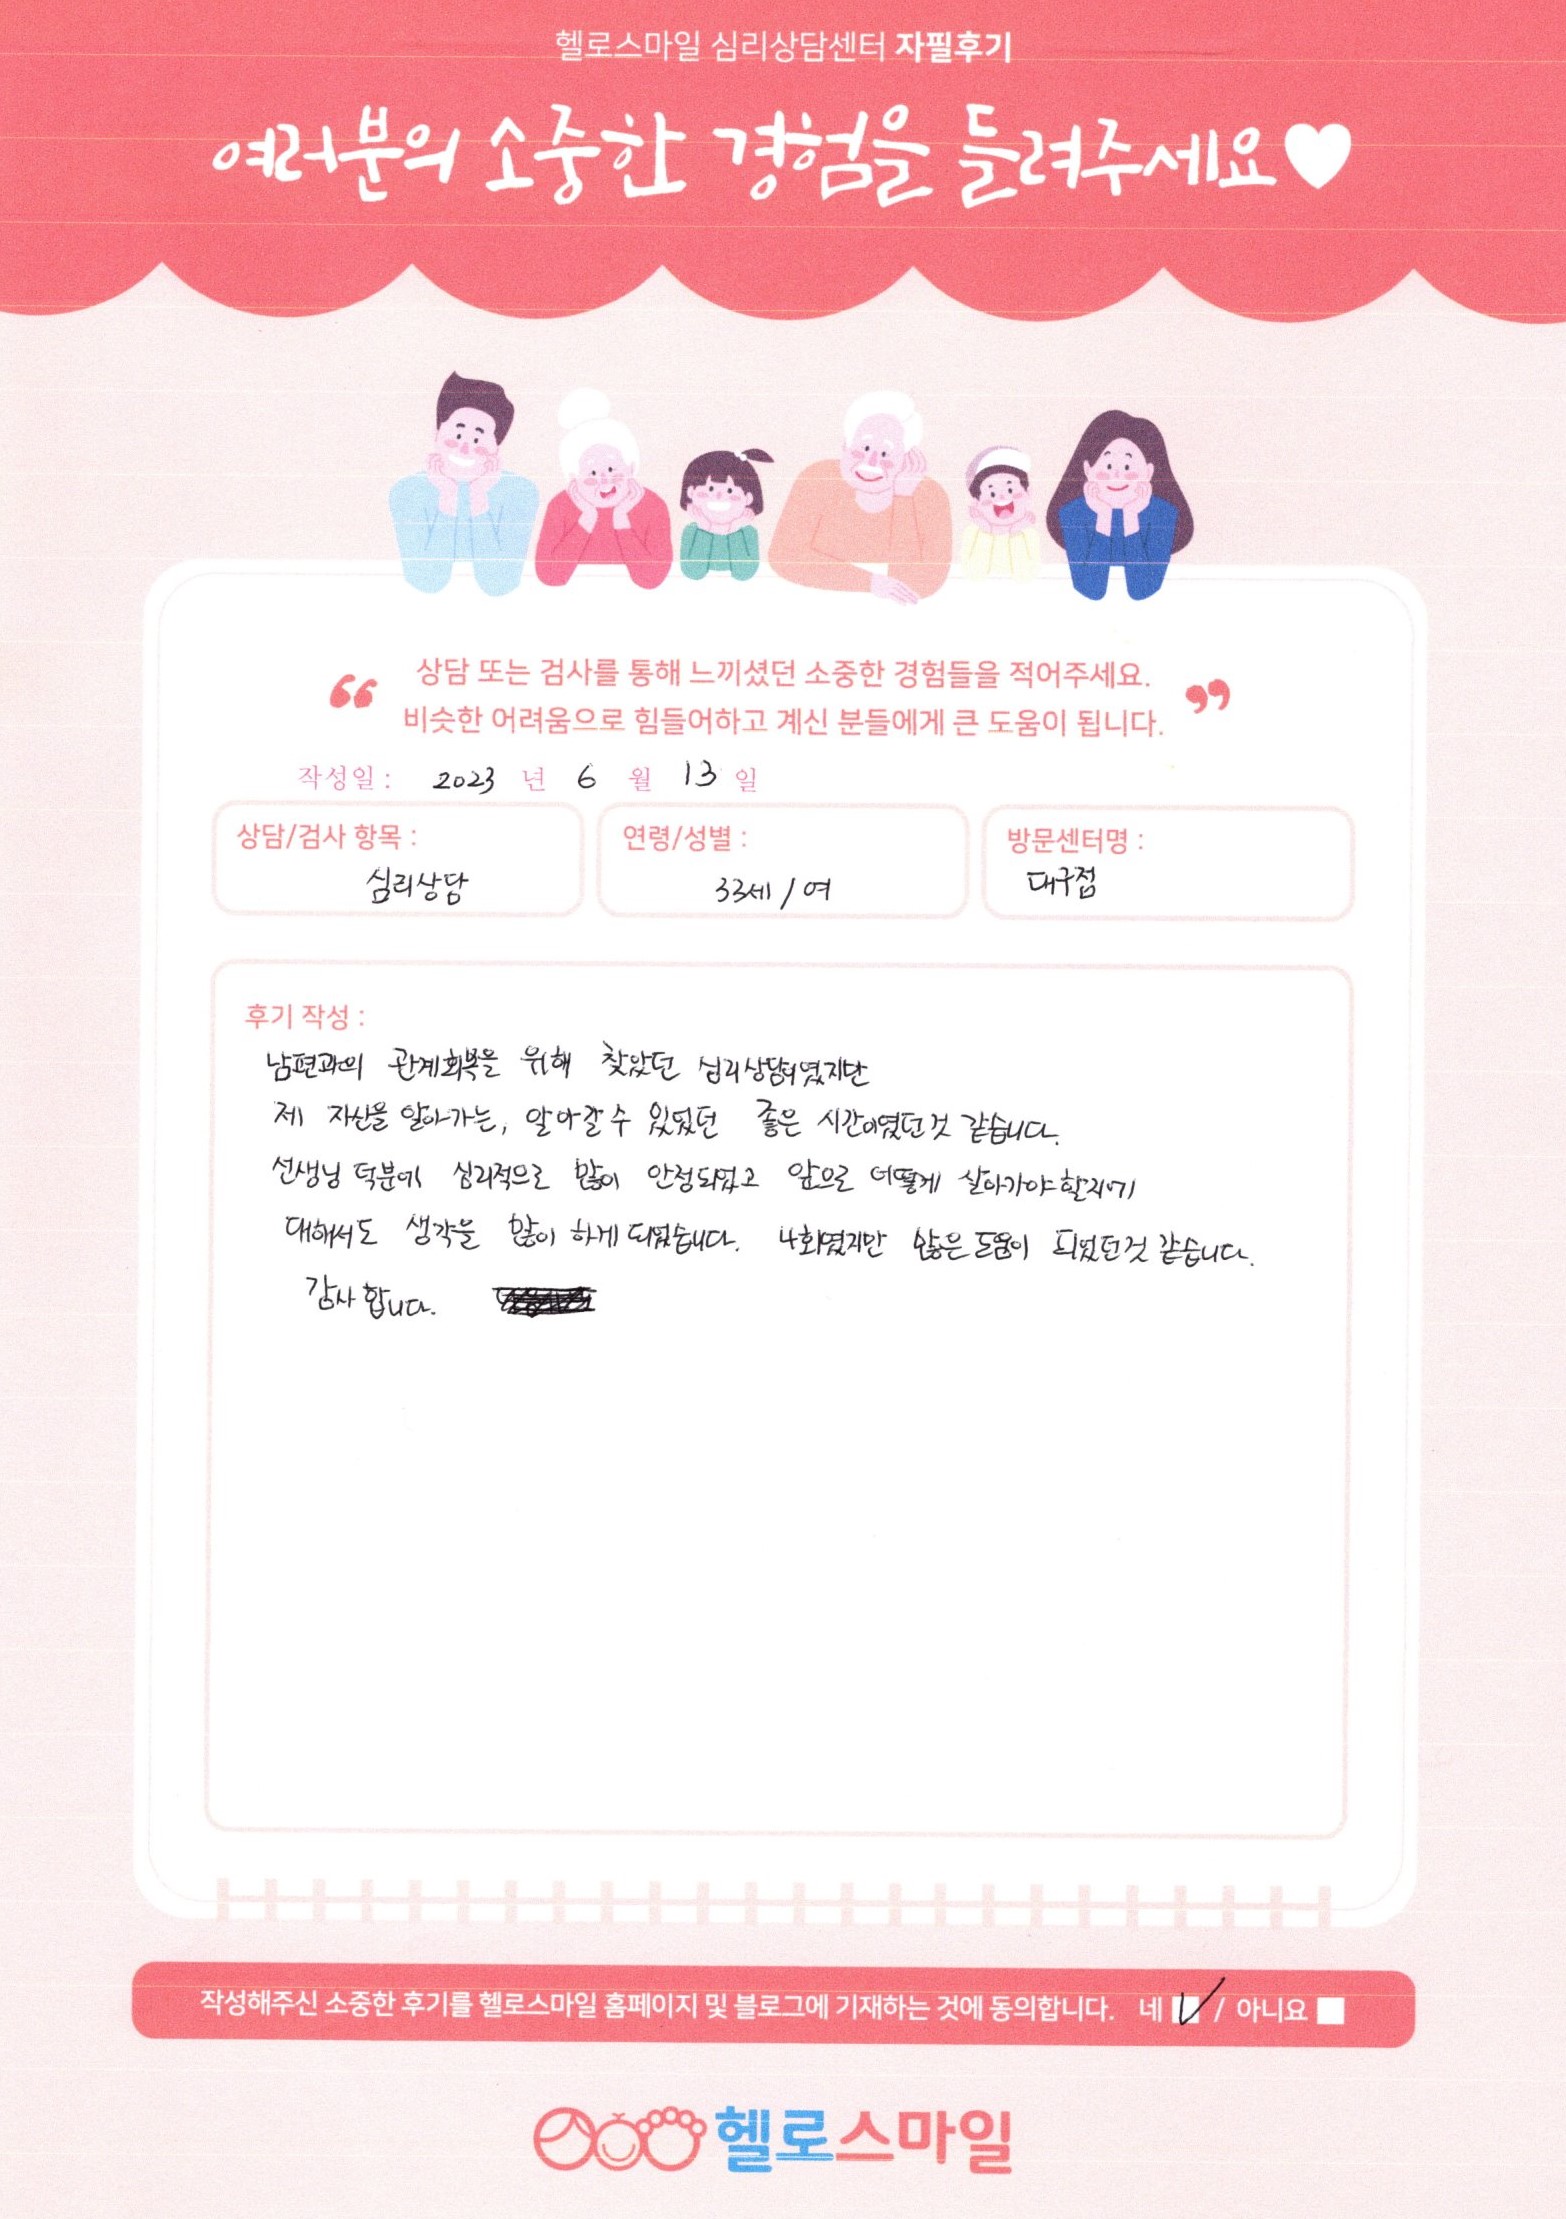 헬로스마일 심리상담센터 자필후기
여러분의 소중한 경험을 들려주세요
상담 또는 검사를 통해 느끼셨던 소중한 경험들을 적어주세요.
비슷한 어려움으로 힘들어하고 계신 분들에게 큰 도움이 됩니다.
작성일 : 2023 년 6 월 13 일
상담/검사 항목 :
심리상담
연령/성별 :
33세 / 여
방문센터명 :
대구점
후기 작성 :
남편과의 관계회복을 위해 찾았던 심리상담이였지만
제 자신을 알아가는, 알아갈 수 있었던 좋은 시간이였던것 같습니다.
선생님 덕분에 심리적으로 많이 안정되었고 앞으로 어떻게 살아가야할지에
대해서도 생각을 많이 하게 되었습니다. 4회였지만 많은 도움이 되었던것 같습니다.
감사합니다.
작성해주신 소중한 후기를 헬로스마일 홈페이지 및 블로그에 기재하는 것에 동의합니다. 네 / 아니요
헬로스마일